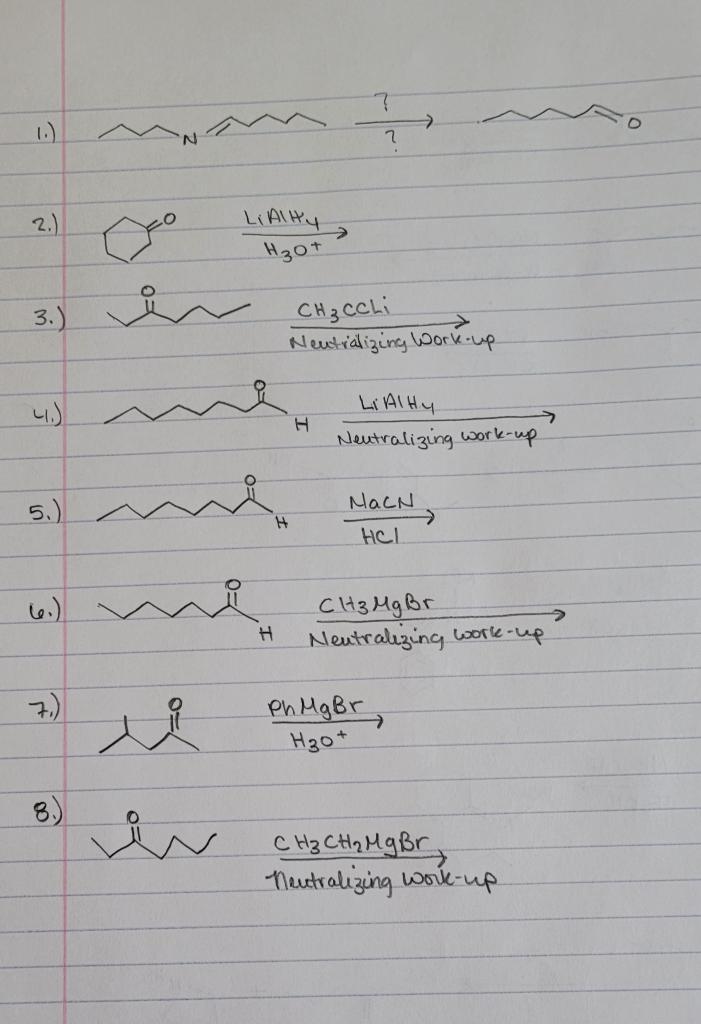 ?
1.) N ? O
2.) O LiAlH4
H3O+
O
3.) CH3CCLi
Neutralizing Work-up
O
4.) H LiAlH4
Neutralizing work-up
O
5.) H NaCN
HCl
O
6.) H CH3MgBr
Neutralizing work-up
7.) O PhMgBr
H3O+
8.) O
CH3CH2MgBr
Neutralizing work-up